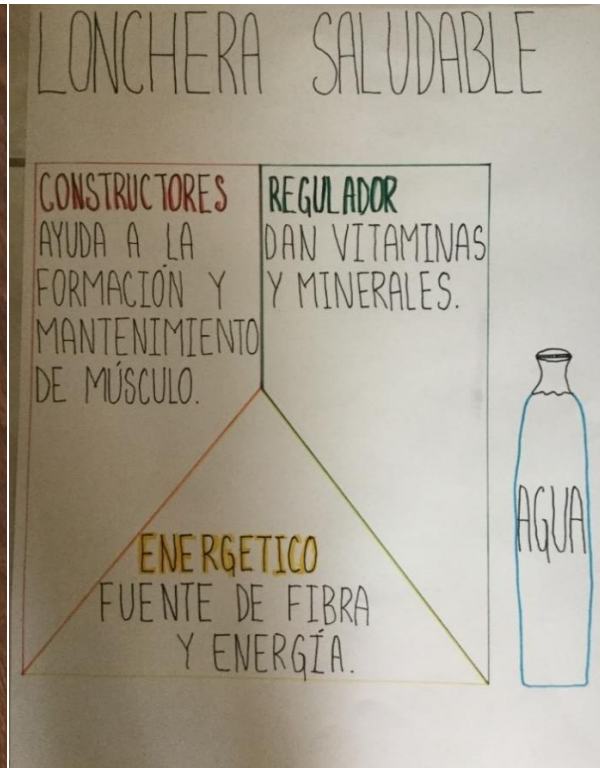 LONCHERA SALUDABLE
CONSTRUCTORES
AYUDA A LA
FORMACIÓN Y
MANTENIMIENTO
DE MÚSCULO.
REGULADOR
DAN VITAMINAS
Y MINERALES.
ENERGETICO
FUENTE DE FIBRA
Y ENERGÍA.
AGUA